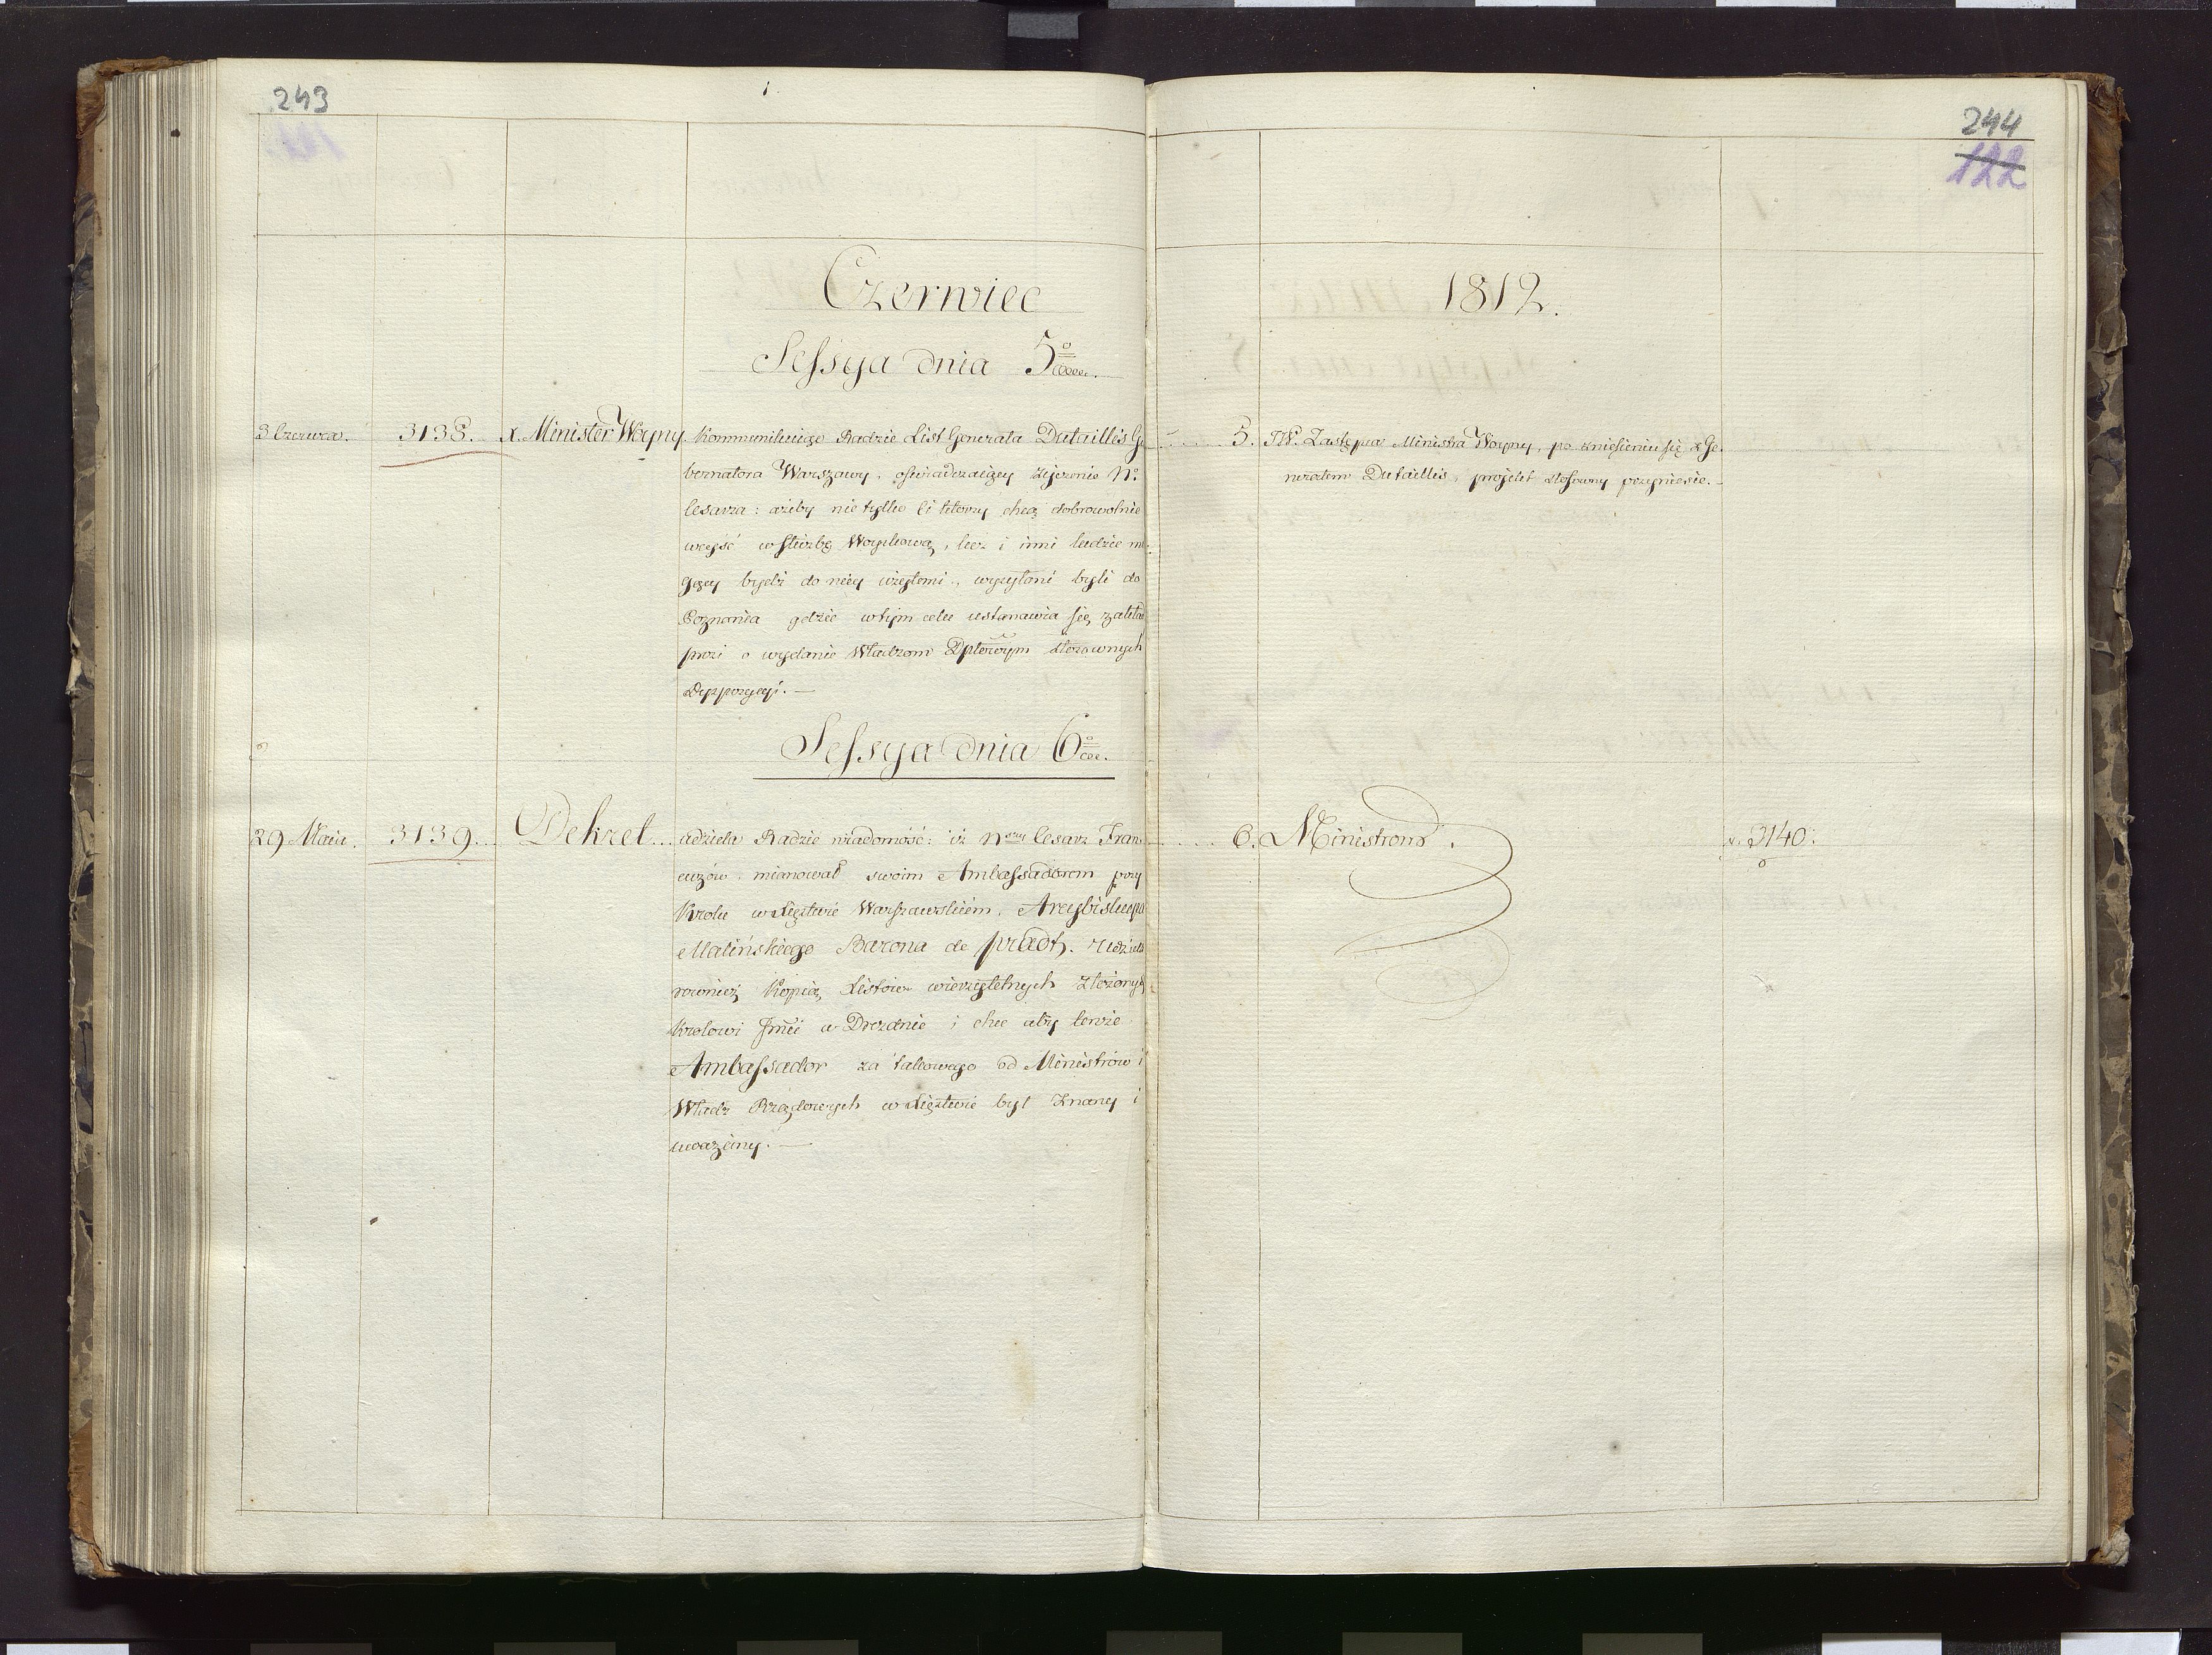 243
244
122
Czerwiec
1812.
Sessya dnia 5º
3 Czerwca. 3138. x. Minister Woyny kommunikuiąc Radzie List Generała Dutaillis Gu
bernatora Warszawy, oświadczaiący życzenie N.
Cesarza: ażeby nie tylko ci którzy chcą dobrowolnie
weyść w służbę Woyskową, lecz i inni ludzie mo
gący bydź do niey wziętemi, wysyłani byli do
Poznania gdzie w tym celu ustanawia się zakład
prosi o wydanie Władzom Dptowym stosownych
dyspozycyi. —
5. JW. Zastępca Ministra Woyny, po zniesieniu się z Ge
nerałem Dutaillis, projekt stosowny przyniesie. —
Sessya dnia 6º
29 Maia. 3139... Dekret... udziela Radzie wiadomość: iż Nszy Cesarz Fran
cuzów mianował swoim Ambassadorem przy
Krolu w Xięztwie Warszawskiém, Arcybiskupa
Malińskiego Barona de Pradt. Udziela
rownież Kopią Listow wierzytelnych złożonych
Krolowi Jmći w Dreznie i chce aby tenże
Ambassador za takowego od Ministrów i
Władz Rządowych w Xięztwie był znany i
uważany. —
6. Ministrom.
v. 3140.